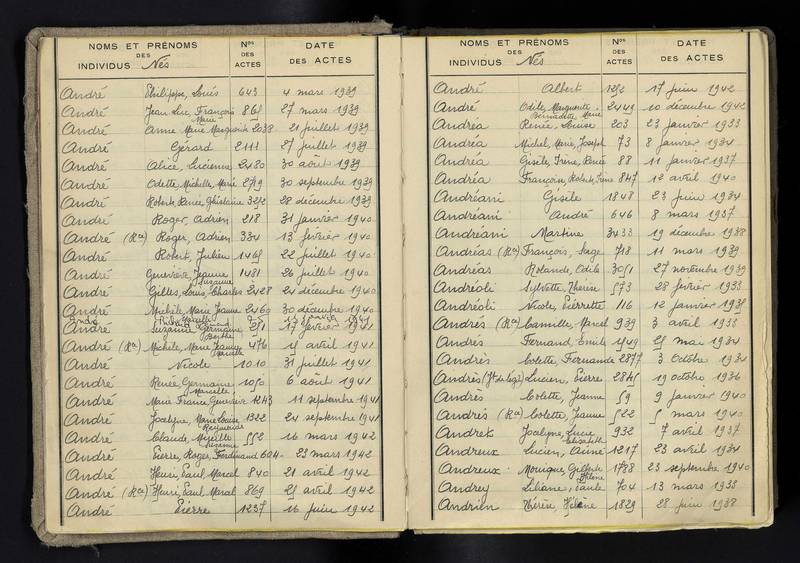 NOMS ET PRÉNOMS
DES
INDIVIDUS Nés
Nos
DES
ACTES
DATE
DES ACTES
André Philippe, Louis 643 4 mars 1939
André Jean Luc, François 861 27 mars 1939
André Anne Marie Marguerite 2038 21 juillet 1939
Marie
André Gérard 2111 27 juillet 1939
André Alice, Lucienne 2480 30 août 1939
André Odette, Michelle, Marie 2719 30 septembre 1939
André Robert, Renée, Ghislaine 28 décembre 1939
André Roger, Adrien 218 31 janvier 1940
André (Rce) Roger, Adrien 334 13 février 1940
André Robert, Julien 1469 22 juillet 1940
André Geneviève, Jeanne 1481 26 juillet 1940
Suzanne
André Gilles, Louis, Charles 2428 24 décembre 1940
André Michèle, Marie Jeanne 2460 30 décembre 1940
André Suzanne, Germaine 281 17 février 1941
Berthe
André (Rce) Michèle, Marie Jeanne 476 4 avril 1941
André Nicole 1010 31 juillet 1941
André Renée, Germaine 1050 6 août 1941
Marcelle
André Marie France, Geneviève 1243 11 septembre 1941
André Jocelyne, Marie Louise 1322 24 septembre 1941
Raymonde
André Claude, Mireille 552 16 mars 1942
Suzanne
André Pierre, Roger, Ferdinand 604 23 mars 1942
André Henri, Paul, Marcel 840 21 avril 1942
André (Rce) Henri, Paul, Marcel 869 25 avril 1942
André Pierre 1237 16 juin 1942
NOMS ET PRÉNOMS
DES
INDIVIDUS Nés
Nos
DES
ACTES
DATE
DES ACTES
André Albert 1252 17 juin 1942
André Odile, Marguerite 2449 10 décembre 1942
Bernadette Marie
Andréa Renée, Louise 203 23 janvier 1933
Andréa Michel, Marie, Joseph 73 8 janvier 1934
Andréa Gisèle, Irène, Renée 88 11 janvier 1937
Andréa François, Robert, Irène 847 12 avril 1940
Andréani Gisèle 1848 23 juin 1934
Andréani André 646 8 mars 1937
Andréani Martine 3433 19 décembre 1938
Andréas (Rce) François, Serge 718 11 mars 1939
Andréas Rolande, Odile 3051 27 novembre 1939
Andréoli Sylvette, Thérèse 573 28 février 1933
Andréoli Nicole, Pierrette 116 12 janvier 1938
Andrès (Rce) Camille, Marcel 939 3 avril 1933
Andrès Fernand, Emile 1549 25 mai 1934
Andrès Colette, Fernande 2877 3 octobre 1934
Andrès Lucien, Pierre 2845 19 octobre 1936
Andrès Colette, Jeanne 59 9 janvier 1940
Andrès (Rce) Colette, Jeanne 522 5 mars 1940
Andret Jocelyne, Lucie 932 7 avril 1937
Elisabeth
Andreux Lucien, Aimé 1217 23 avril 1934
Andreux Monique, Gilberte 1788 23 septembre 1940
Hélène
Andrey Liliane, Paule 704 13 mars 1938
Andrien Thérèse, Hélène 1829 28 juin 1938